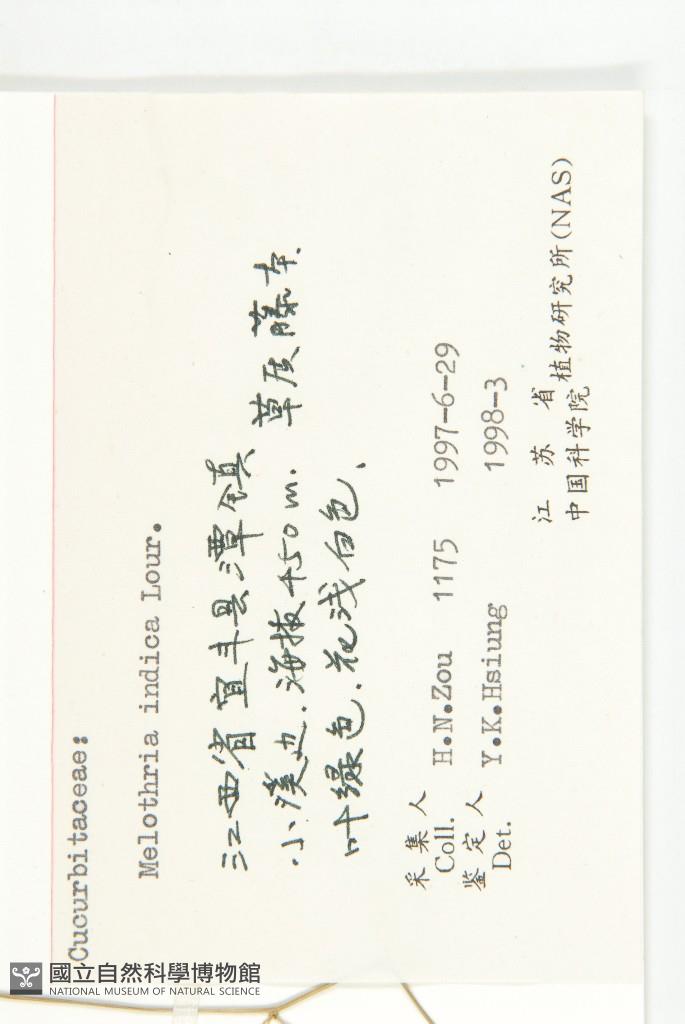 Cucurbitaceae:
Melothria indica Lour.
江西省宜丰县潭镇
小溪边.海拔450m. 草质藤本.
叶绿色.花浅白色.
采集人
Coll. H.N.Zou 1175 1997-6-29
鉴定人
Det. Y.K.Hsiung 1998-3
江苏省
中国科学院 植物研究所(NAS)
國立自然科學博物館
NATIONAL MUSEUM OF NATURAL SCIENCE